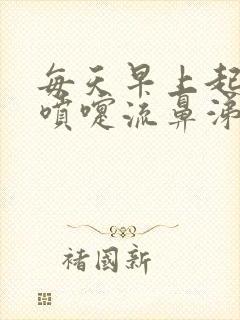 每天早上起
喷嚏流鼻涕
褚国新